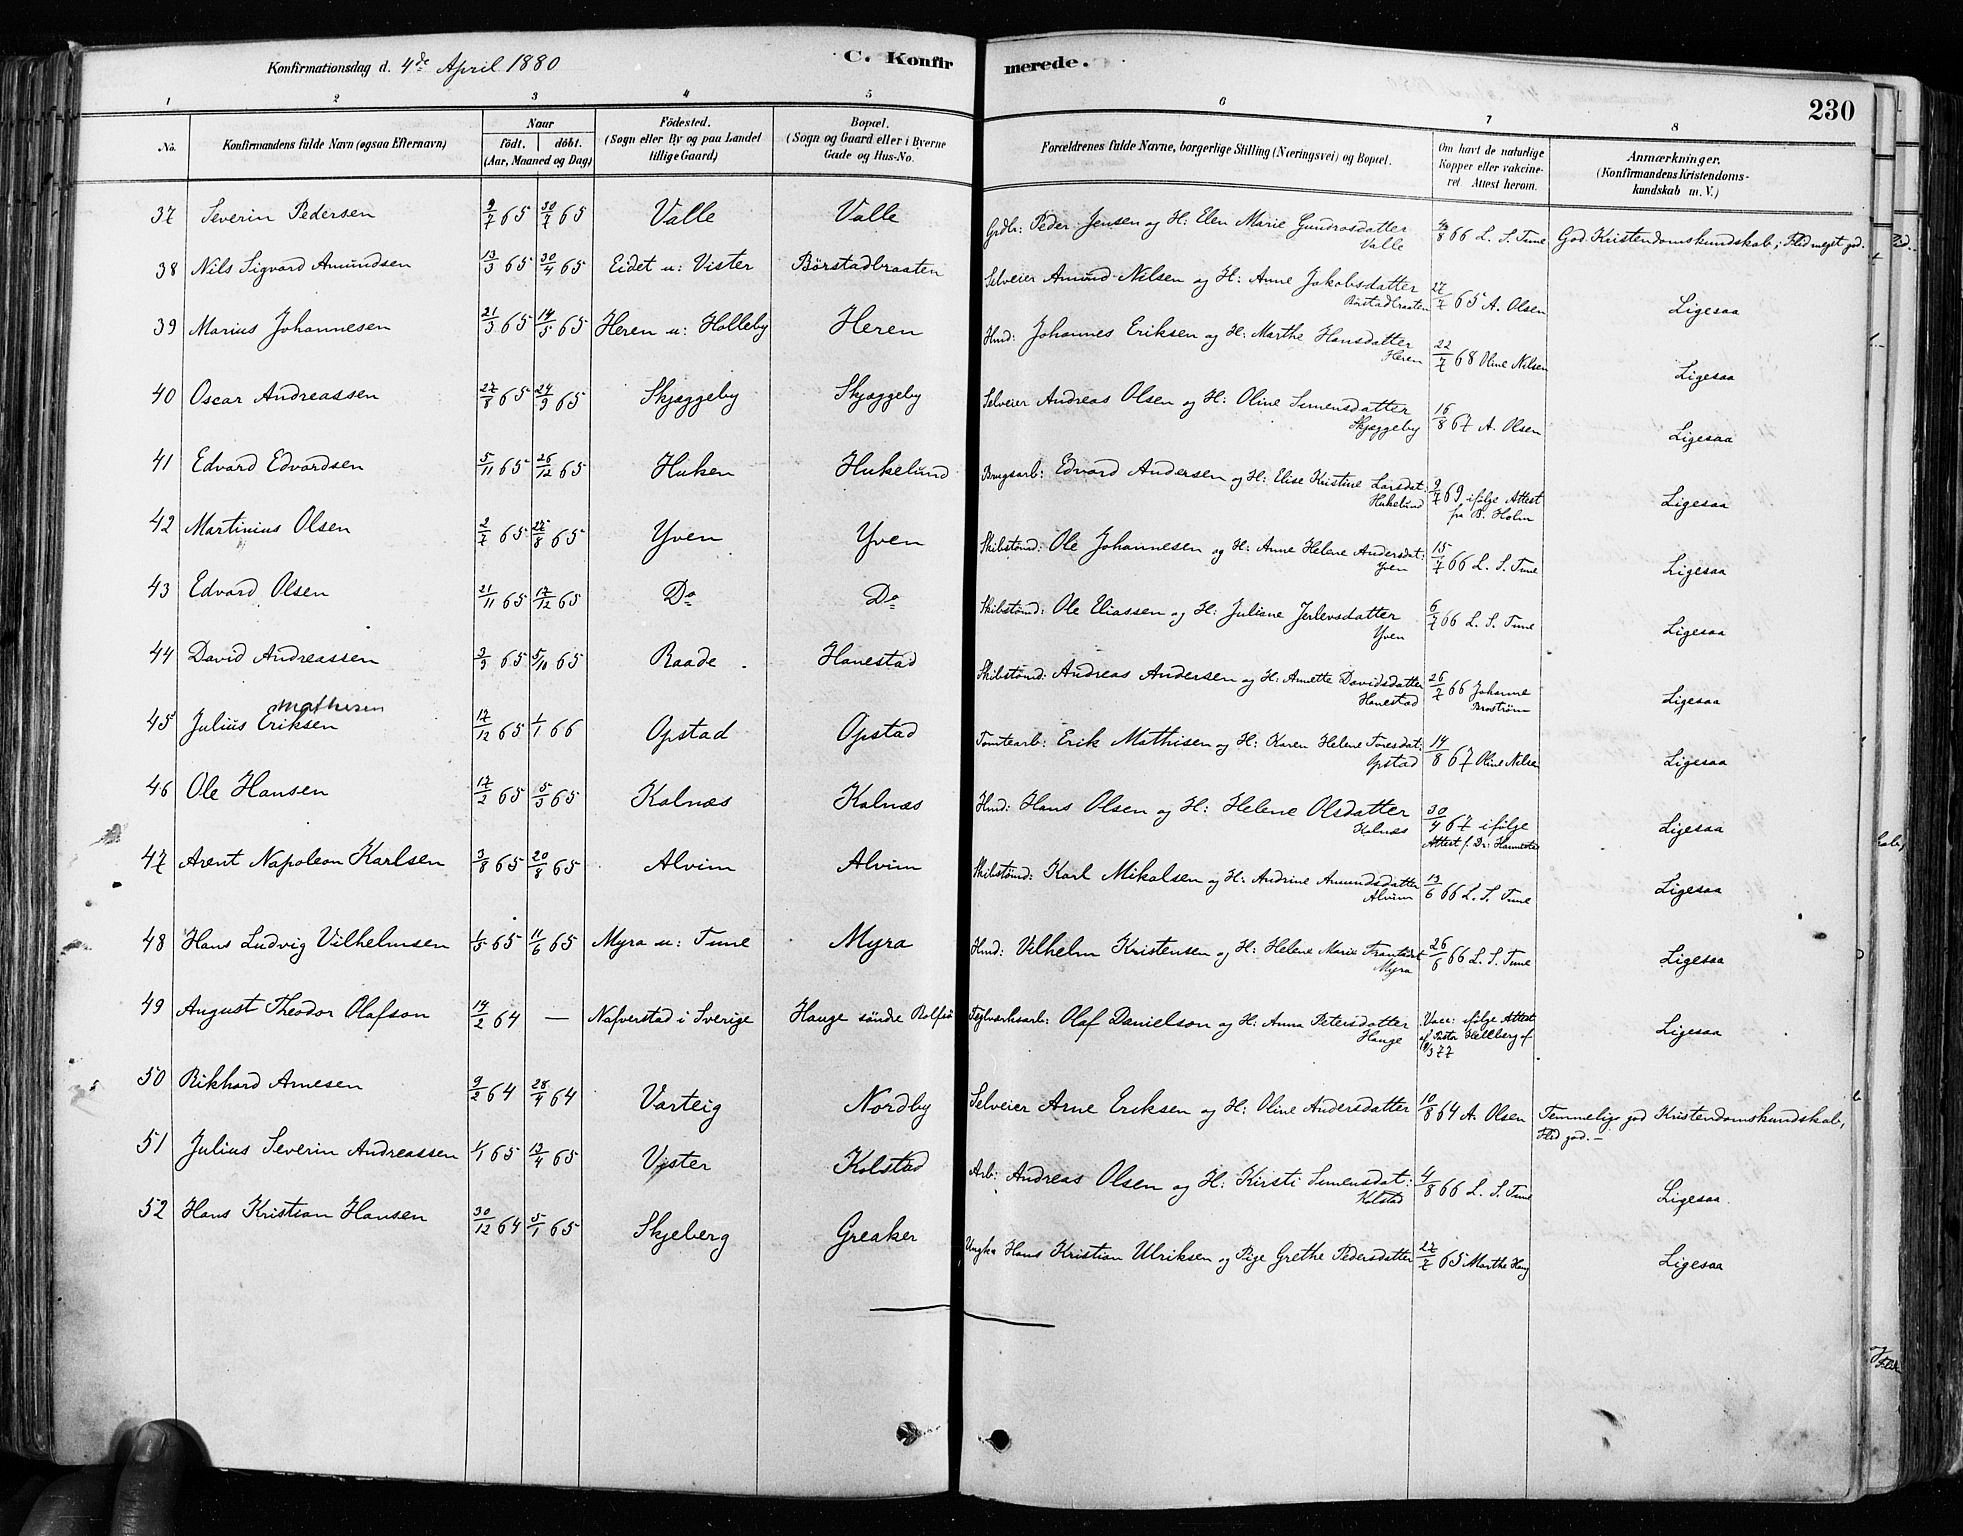 Konfirmationsdag d. 4de April 1880
C. Konfirmerede.
230
1 2 3 4 5 6 7 8
No. | Konfirmandens fulde Navn (ogsaa Efternavn) | Naar födt. döbt. (Aar, Maaned og Dag) | Födested. (Sogn eller By og paa Landet tillige Gaard) | Bopæl. (Sogn og Gaard eller i Byerne Gade og Hus-No. | Forældrenes fulde Navne, borgerlige Stilling (Næringsvei) og Bopæl. | Om havt de naturlige Kopper eller vakcineret Attest herom. | Anmærkninger. (Konfirmandens Kristendomskundskab m. V.)
37 Severin Pedersen 9/7 65 30/7 65 Valle Valle Grdbr: Peder Jensen og H: Elen Marie Gundrosdatter Valle /8 66 L. S. Tune God Kristendomskundskab; Flid meget god.
38 Nils Sigvard Amundsen 13/3 65 30/4 65 Eidet u: Vister Börstadbraaten Selveier Amund Nilsen og H: Anne Jakobsdatter Börstadbraaten 27/7 65 A. Olsen Ligesaa
39 Marius Johannesen 21/3 65 14/5 65 Heren u: Holleby Heren Hmd: Johannes Eriksen og H: Marthe Hansdatter Heren 22/7 68 Oline Nilsen Ligesaa
40 Oscar Andreassen 27/8 65 24/9 65 Skjæggeby Skjæggeby Selveier Andreas Olsen og H: Oline Simensdatter Skjæggeby 16/8 67 A. Olsen Ligesaa
41 Edvard Edvardsen 5/11 65 26/12 65 Huken Hukelund Brugsarb: Edvard Andersen og H: Elise Kristine Larsdat: Hukelund 9/7 69 ifölge Attest fra B. Holm Ligesaa
42 Martinius Olsen 2/7 65 27/8 65 Yven Yven Skibstömd: Ole Johannesen og H: Anne Helene Andersdat: Yven 15/7 66 L. S. Tune Ligesaa
43 Edvard Olsen 21/11 65 17/12 65 Do Do Skibstömd: Ole Eliassen og H: Juliane Jerlevsdatter Yven 6/7 66 L. S. Tune Ligesaa
44 David Andreassen 3/9 65 5/10 65 Raade. Hanestad Skibstömd: Andreas Andersen og H: Annette Davidsdatter Hanestad 26/7 66 Johanne Broström Ligesaa
45 Julius Eriksen Mathisen 17/12 65 1/1 66 Opstad Opstad Tomtearb: Erik Mathisen og H: Karen Helene Toresdat: Opstad 14/8 67 Oline Nilsen Ligesaa
46 Ole Hansen 17/2 65 5/3 65 Kalnæs Kalnæs Hmd: Hans Olsen og H: Helene Olsdatter Kalnæs 30/4 67 ifölge Attest f. Dr: Ligesaa
47 Arent Napoleon Karlsen 3/8 65 20/8 65 Alvim Alvim Skibstömd: Karl Mikalsen og H: Andrine Amundsdatter Alvim 13/6 66 L. S. Tune Ligesaa
48 Hans Ludvig Vilhelmsen 1/5 65 11/6 65 Myra u: Tune Myra Hmd: Vilhelm Kristensen og H: Helene Marie Frantsdat Myra 26/6 66 L. S. Tune Ligesaa
49 August Theodor Olafson 14/2 64 — Nafverstad i Sverige Hauge söndre Rolfsö Teglværksarb: Olaf Danielson og H: Anna Petersdatter Hauge Vacc: ifölge Attest af Pastor Hellberg af 9/3 77 Ligesaa
50 Rikhard Arnesen 9/2 64 28/4 64 Varteig Nordby Selveier Arne Eriksen og H: Oline Andersdatter 10/8 64 A. Olsen Temmelig god Kristendomskundskab, Flid god.—
51 Julius Severin Andreassen 1/1 65 13/4 65 Vister Kolstad Arb: Andreas Olsen og H: Kirsti Simensdat: Kolstad 4/8 66 L. S. Tune Ligesaa.
52 Hans Kristian Hansen 30/12 64 5/1 65 Skjeberg Greaker Ungka Hans Kristian Ulriksen og Pige Grethe Pedersdatter 27/7 65 Marthe Haug Ligesaa